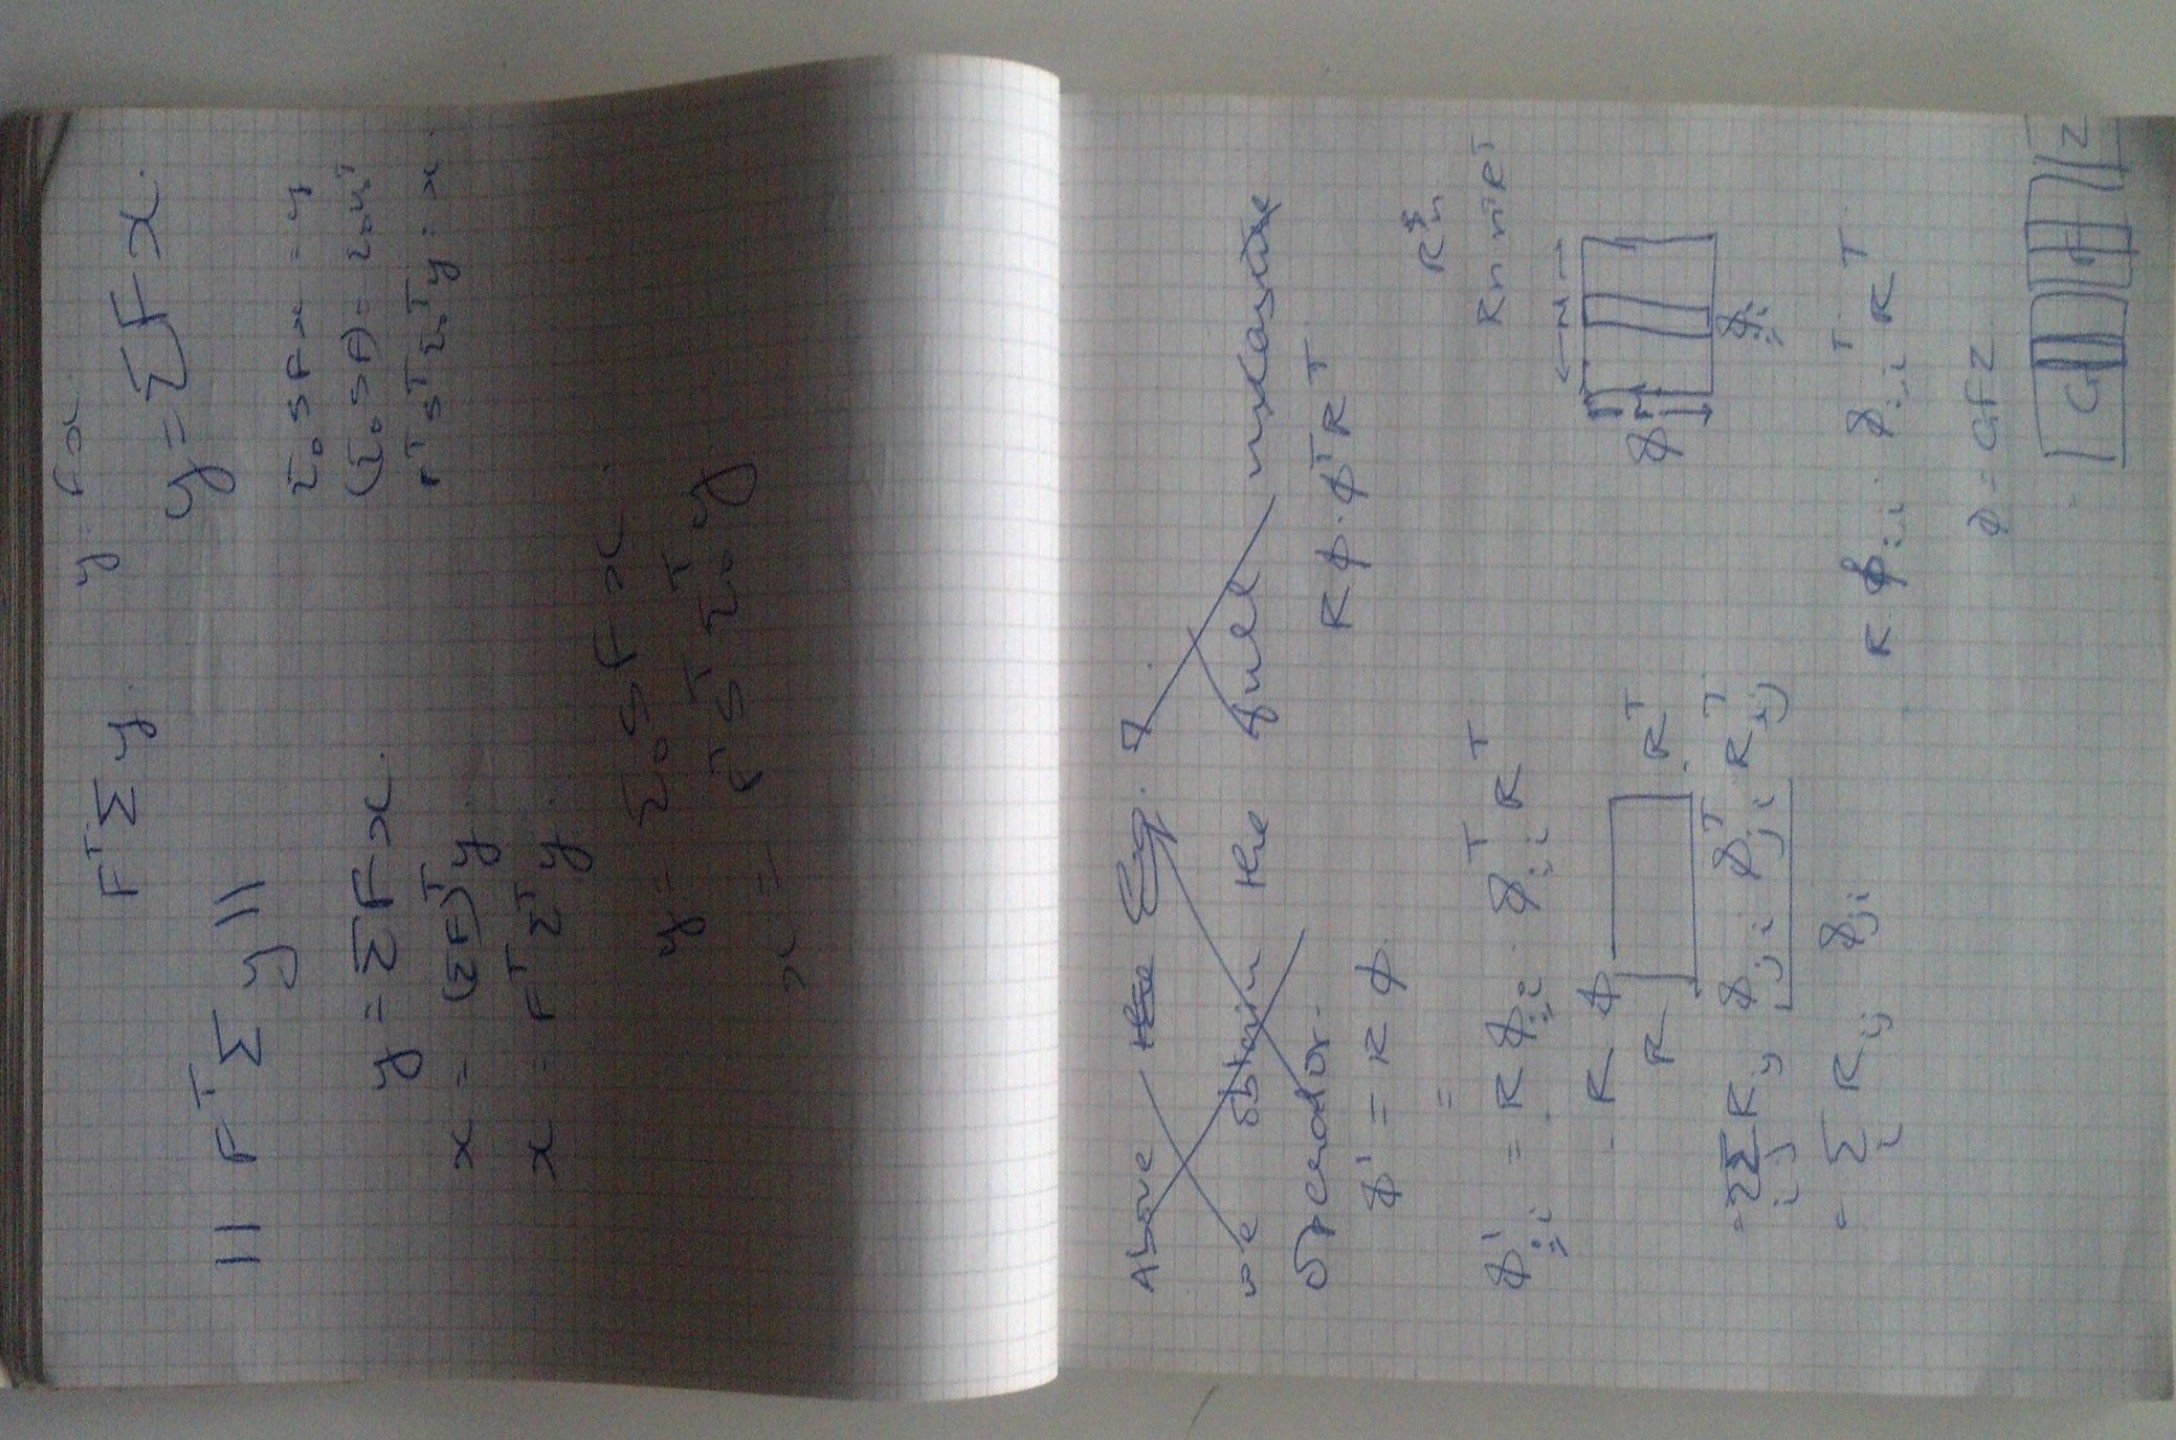 y = Fx.
FᵀΣy.
y = ΣFx.
|| FᵀΣy ||
Σ₀SFx = y
y = ΣFx.
(Σ₀SF) =
FᵀSᵀΣ₀ᵀy = x.
x = (ΣF)ᵀy
x = FᵀΣᵀy.
y = Σ₀SFx.
x = FᵀSᵀΣ₀ᵀy
Above the Eq. 7.
we obtain the full
operator.
Rϕ·ϕᵀRᵀ
ϕ' = Rϕ.
=
ϕ':,i = Rϕ:,i · ϕ:,iᵀRᵀ
Rn nᵀRᵀ
Rϕ
R Rᵀ
ϕ
ϕ:,i
= Σi Σj Rij ϕj,i ϕj,iᵀ Rijᵀ
= Σi Rij ϕji
Rϕ:,i · ϕ:,iᵀRᵀ
ϕ = GFZ.
G F Z